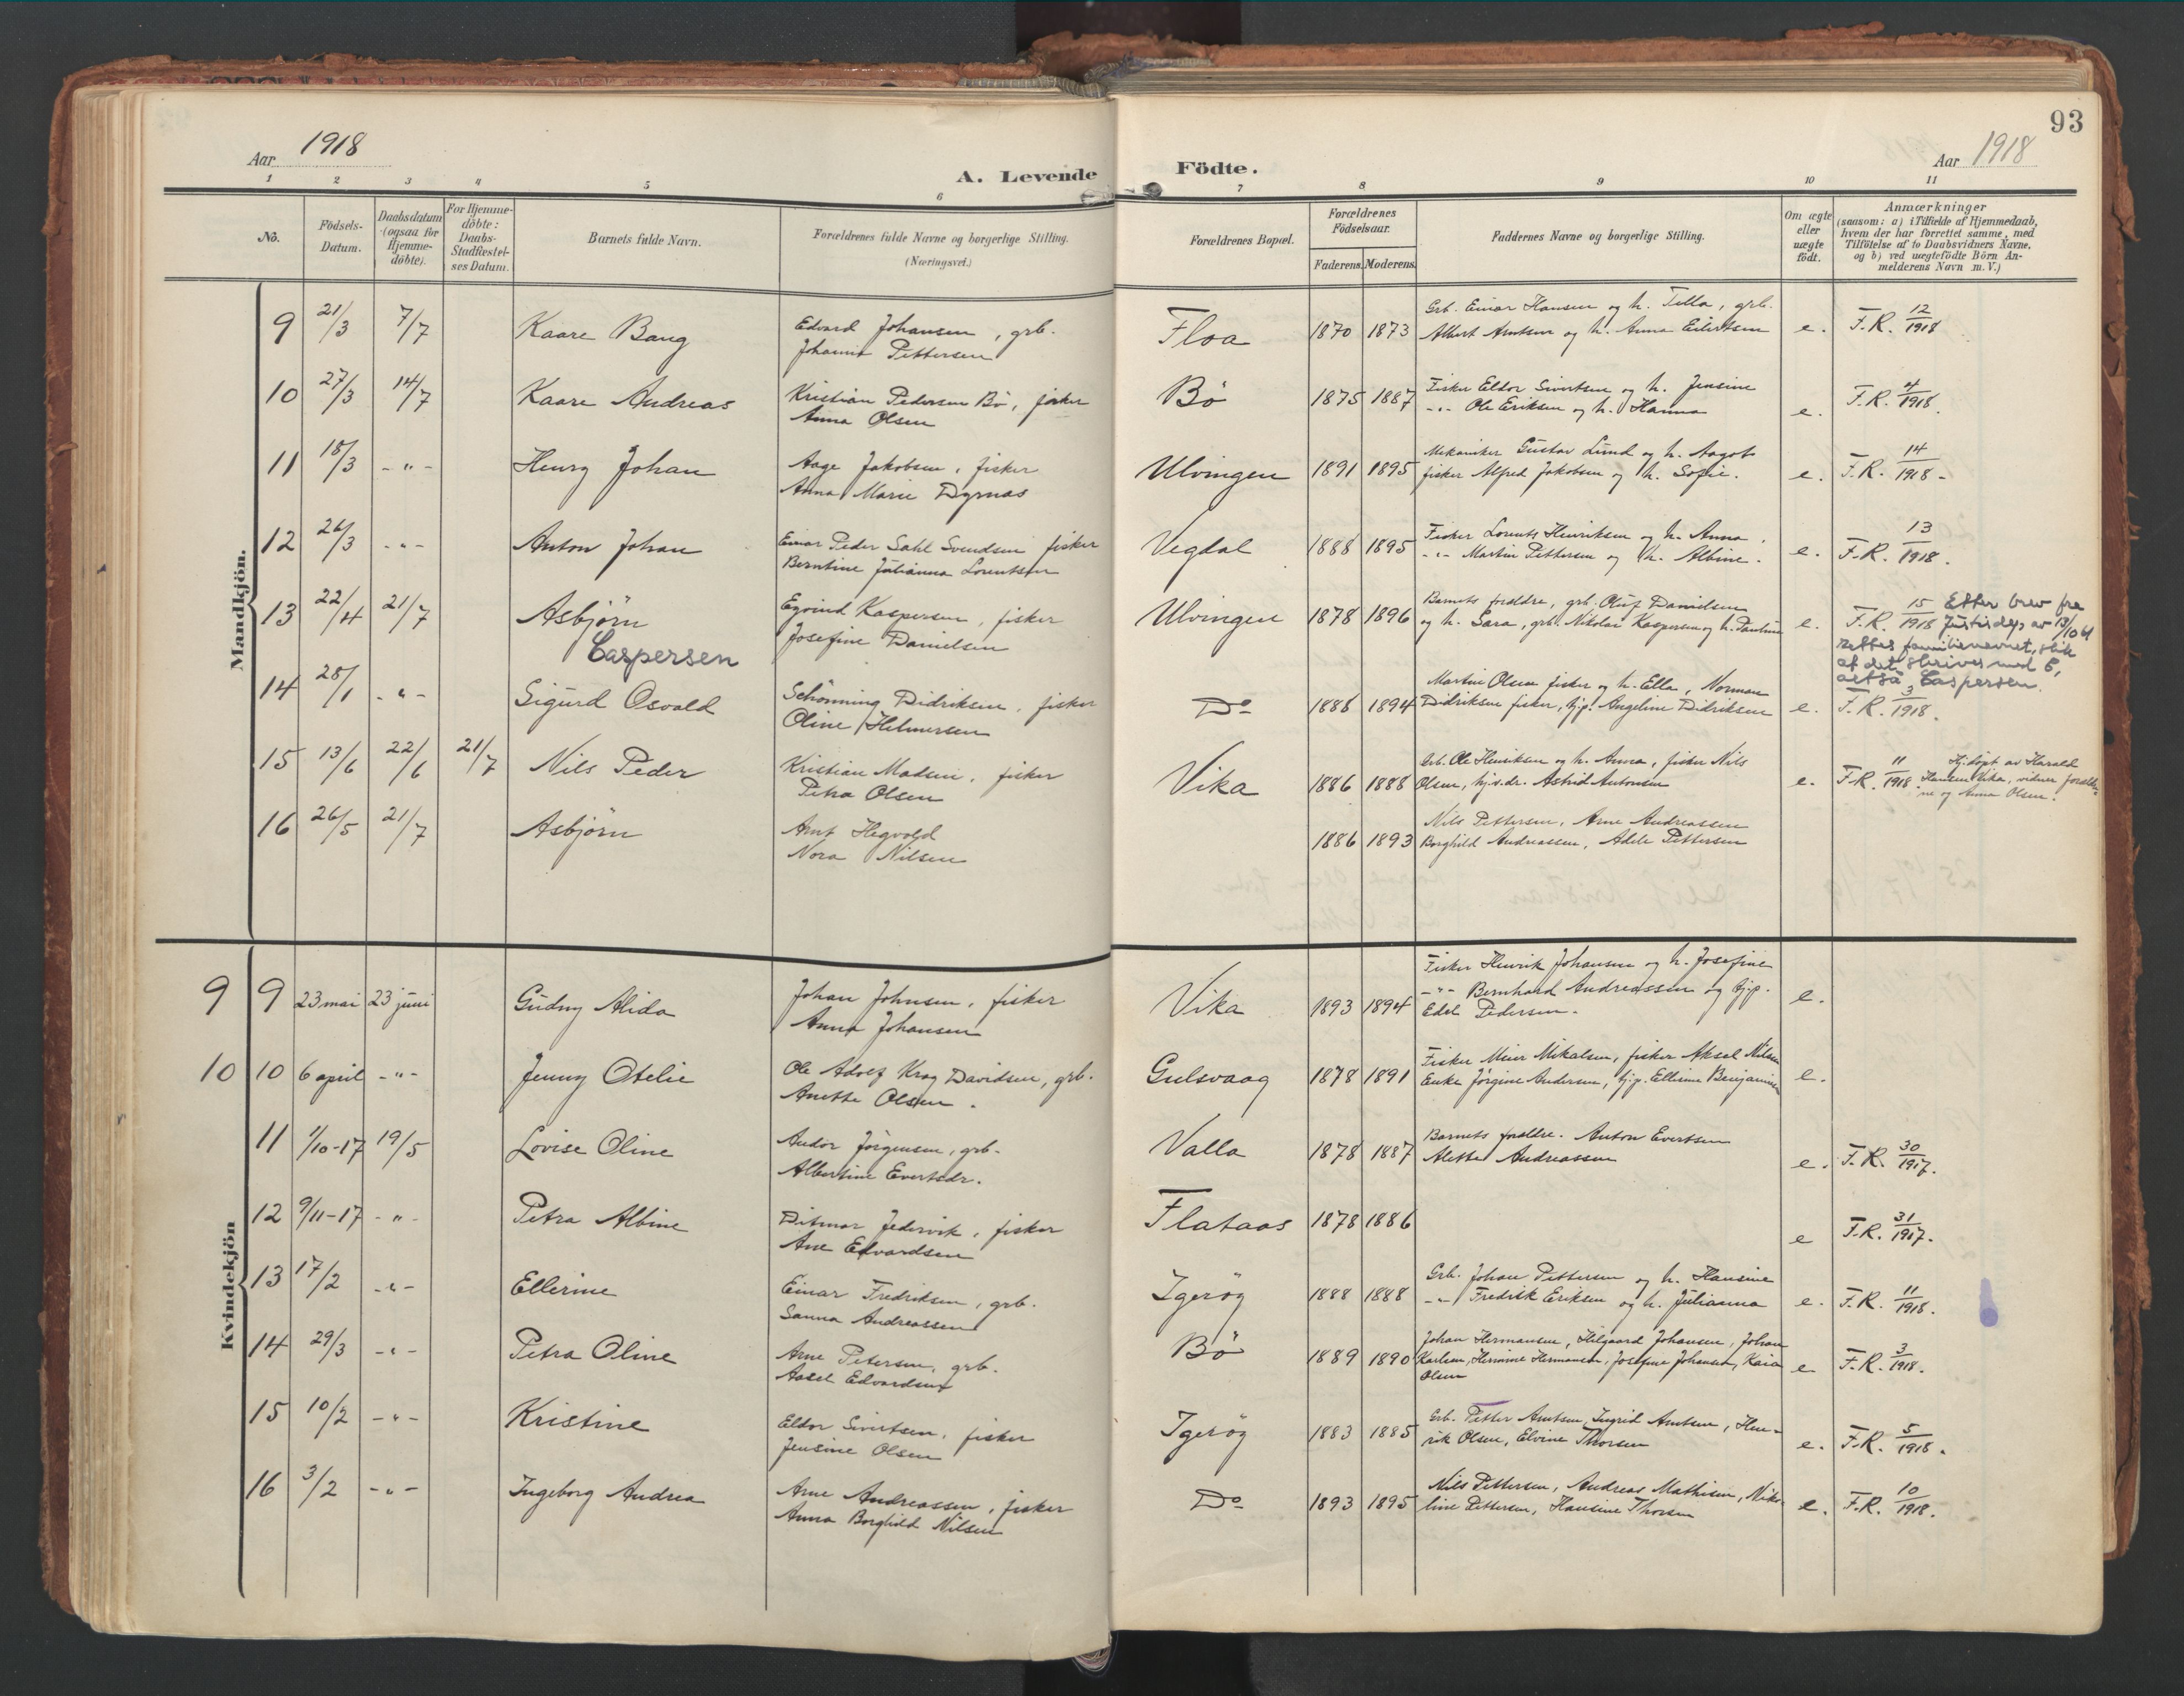 93
Aar 1918
A. Levende Födte.
Aar 1918
1 2 3 4 5 6 7 8 9 10 11
No.
Födsels-
Datum.
Daabsdatum
(ogsaa for
Hjemme-
döbte).
For Hjemme-
döbte:
Daabs-
Stadfæstel-
ses Datum.
Barnets fulde Navn.
Forældrenes fulde Navne og borgerlige Stilling.
(Næringsvei.)
Forældrenes Bopæl.
Forældrenes
Födselsaar.
Faderens. Moderens.
Faddernes Navne og borgerlige Stilling.
Om ægte
eller
uægte
født.
Anmærkninger
(saasom: a) i Tilfælde af Hjemmedaab,
hvem der har forrettet samme, med
Tilföielse af to Daabsvidners Navne,
og b) ved uægtefödte Börn An-
melderens Navn m. V.)
Mandkjön.
9 21/3 7/7 Kaare Bang
Edvard Johansen, grb.
Johanna Pettersen
Floa 1870 1873
Grb. Einar Hansen og h. Tella, grb.
Albert Arntsen og h. Anna Eilertsen
e. F.R. 12/1918
10 27/3 14/7 Kaare Andreas
Kristian Pedersen Bö, fisker
Anna Olsen
Bö 1875 1887
Fisker Eldor Sivertsen og h. Jensine
-"- Ole Eriksen og h. Hanna
e. F.R. 4/1918.
11 18/3 -"- Henry Johan
Aage Jakobsen, fisker
Anna Marie Dyrnas
Ulvingen 1891 1895
Mekaniker Gustav Lund og h. Aagot
fisker Alfred Jakobsen og h. Sofie.
e. F.R. 14/1918.
12 26/3 -"- Anton Johan
Einar Peder Sahl Svendsen fisker
Berntine Julianna Lorentsen
Vegdal 1888 1895
Fisker Lorents Henriksen og h. Anna.
-"- Martin Pettersen og h. Albine.
e. F.R. 13/1918.
13 22/4 21/7 Asbjörn
Caspersen
Eyvind Kaspersen, fisker
Josefine Danielsen
Ulvingen 1878 1896
Barnets foraldre, grb. Oluf Danielsen
og h. Sara, grb. Nikolai Kaspersen og h. Pauline
e. F.R. 15/1918 Etter brev fra
Justisdep. av 13/10 61
rettes familienavnet, slik
at det skrives med C,
altså Caspersen.
14 28/1 -"- Sigurd Osvald
Schönning Didriksen, fisker
Oline Helmersen
Do 1886 1894
Martin Olsen fisker og h. Ella, Norman
Didriksen fisker, tjp. Angeline Didriksen
e. F.R. 3/1918.
15 13/6 22/6 21/7 Nils Peder
Kristian Madsen, fisker
Petra Olsen
Vika 1886 1888
Grb. Ole Henriksen og h. Anna, fisker Nils
Olsen, hj.v.dr. Astrid Antonsen
e. F.R. 11/1918. Hj.döpt av Harald
Hansen Vika, vidner foraldre-
ne og Anna Olsen.
16 26/5 21/7 Asbjörn
Arnt Hegvold
Nora Nilsen
1886 1893
Nils Pettersen, Arne Andreassen
Borghild Andreassen, Adele Pettersen
Kvindekjön
9 9 23 mai 23 juni Gudny Alida
Johan Johnsen, fisker
Anna Johansen
Vika 1893 1894
Fisker Henrik Johansen og h. Josefine
-"- Bernhard Andreassen og tjp.
Edel Pedersen.
e.
10 10 6 april -"- Jenny Otelie
Ole Adolf Krog Davidsen, grb.
Anette Olsen.
Gulsvaag 1878 1891
Fisker Meier Mikalsen, fisker Aksel Nilsen
Enke Jörgine Andersen, tjp. Ellerine Benjaminsen
e.
11 1/10-17 19/5 Lovise Oline
Andor Jörgensen, grb.
Albertine Evertsdr.
Valla 1878 1887
Barnets foraldre. Anton Evertsen
Alette Andreassen
e. F.R. 30/1917.
12 9/11-17 -"- Petra Albine
Ditmar Jedervik, fisker
Ane Edvardsen
Flataas 1878 1886
e F.R. 31/1917.
13 17/2 -"- Ellerine
Einar Fredriksen, grb.
Sanna Andreassen
Igeröy 1888 1888
Grb. Johan Pettersen og h. Hansine
-"- Fredrik Eriksen og h. Julianna
e. F.R. 11/1918.
14 29/3 -"- Petra Oline
Arne Petersen, grb.
Aasel Edvardsen
Bö 1889 1890
Johan Hermansen, Hilgaard Johansen, Johan
Karlsen, Hermine Hermansen, Josefine Johansen, Kaia
Olsen
e F.R. 3/1918.
15 10/2 -"- Kristine
Eldor Sivertsen, fisker
Jensine Olsen
Igeröy 1883 1885
Grb. Petter Arntsen, Ingrid Arntsen, Hen-
rik Olsen, Elvine Thorsen
e. F.R. 5/1918.
16 3/2 -"- Ingeborg Andrea
Arne Andreassen, fisker
Anna Borghild Nilsen
Do 1893 1895
Nils Pettersen, Andreas Mathisen, Niko-
line Pettersen, Hansine Thorsen
e. F.R. 10/1918.